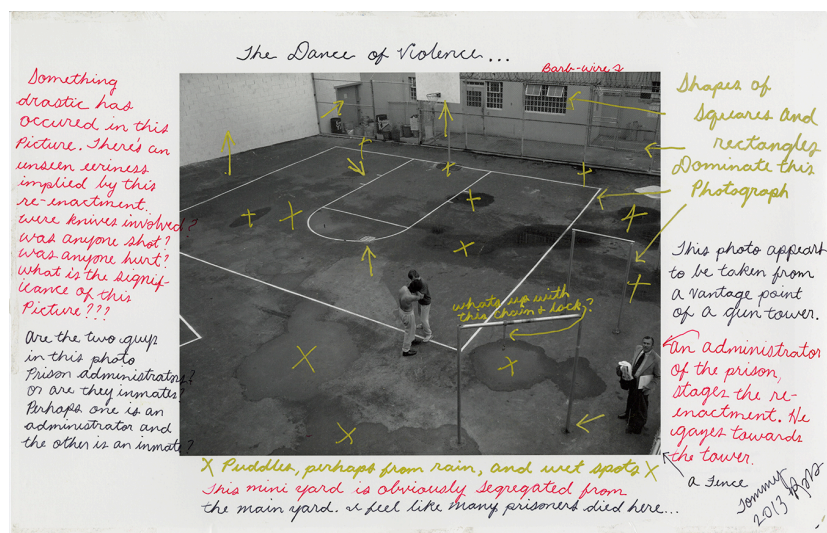 The Dance of Violence...
Barb-wires
Something
drastic has
occured in this
Picture. There's an
unseen eeriness
implied by this
re-enactment.
were knives involved?
was anyone shot?
was anyone hurt?
what is the signif-
icance of this
Picture???
Are the two guys
in this photo
Prison administrators?
or are they inmates?
Perhaps one is an
administrator and
the other is an inmate?
what's up with
this chain & lock?
Shapes of
Squares and
rectangles
Dominate this
Photograph
This photo appears
to be taken from
a vantage point
of a gun tower.
An administrator
of the prison,
stages the re-
enactment. He
gazes towards
the tower.
a Fence
X Puddles, perhaps from rain, and wet spots X
This mini yard is obviously segregated from
the main yard. I feel like many prisoners died here...
Tommy
2013